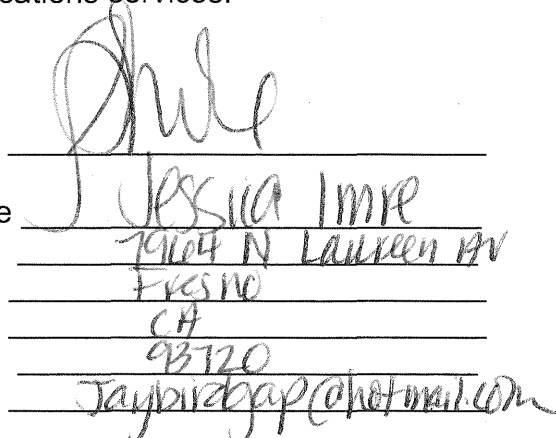 ications services.
e Jessica Imre
7964 N Laureen Av
Fresno
CA
93720
Jaybirdgap@hotmail.com